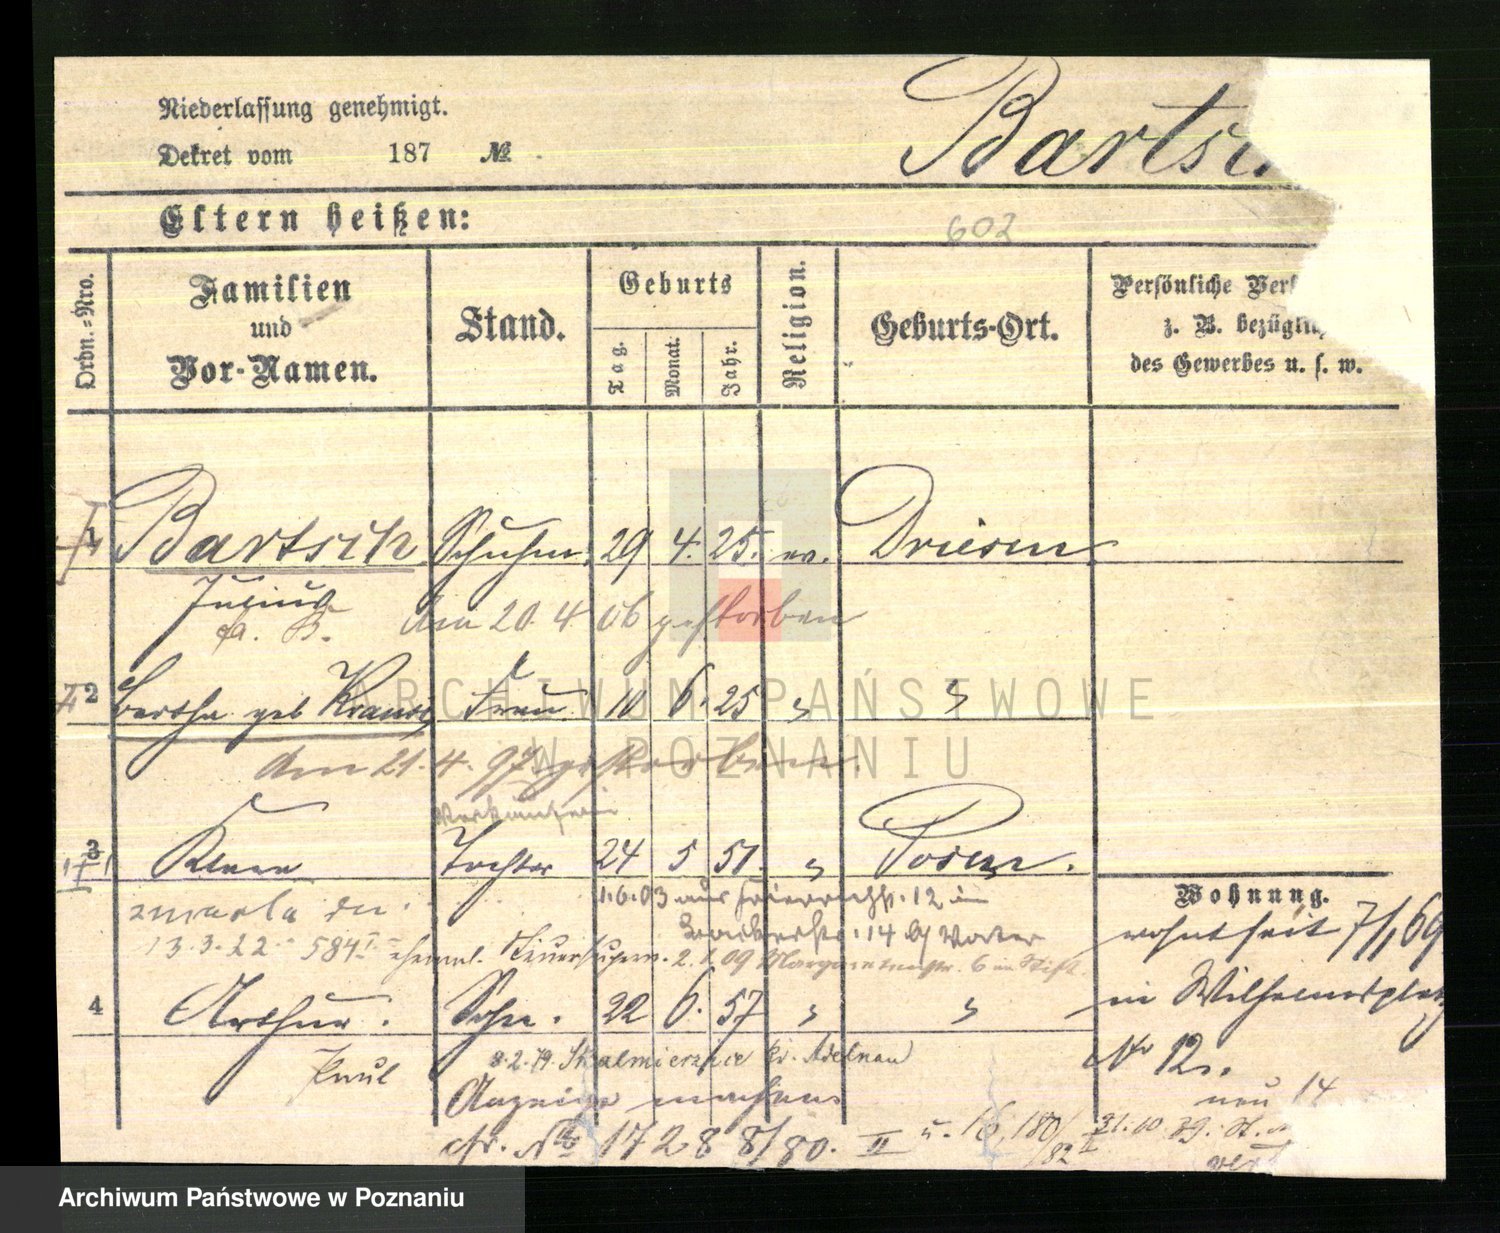 Niederlassung genehmigt.
Dekret vom 187 №
Bartsch
Eltern heißen:
602
Ordn.-Nro.
Familien und Vor-Namen.
Stand.
Geburts
Tag.
Monat.
Jahr.
Religion.
Geburts-Ort.
Persönliche Ver
z. B. bezügli
des Gewerbes u. s. w.
1 Bartsch Schuhm. 29 4. 25. ev. Driesen
Julius
am 20. 4 06 gestorben
2 Bertha geb Krause Frau 10 6. 25 " "
am 21. 4. 97 gestorben.
Verkäuferin
3 Klara Tochter 24 5 51. " Posen.
1.6.03 aus 12 in
zmarła dn. 14 b/
13.3.22 584 I ehemal. 2.1.09 6 im Stift.
Wohnung.
wohnt seit 7/1 69
in Wilhelmsplatz
No 12.
neu 14
4 Arthur. Sohn. 22 6. 57 " "
Paul
8.2.79. Skalmierzyce Kr. Adelnau
Anzeige machen
cfr. № 1728 8/80. II u. 16, 180/82 II
21.10.89.
ARCHIWUM PAŃSTWOWE
W POZNANIU
Archiwum Państwowe w Poznaniu